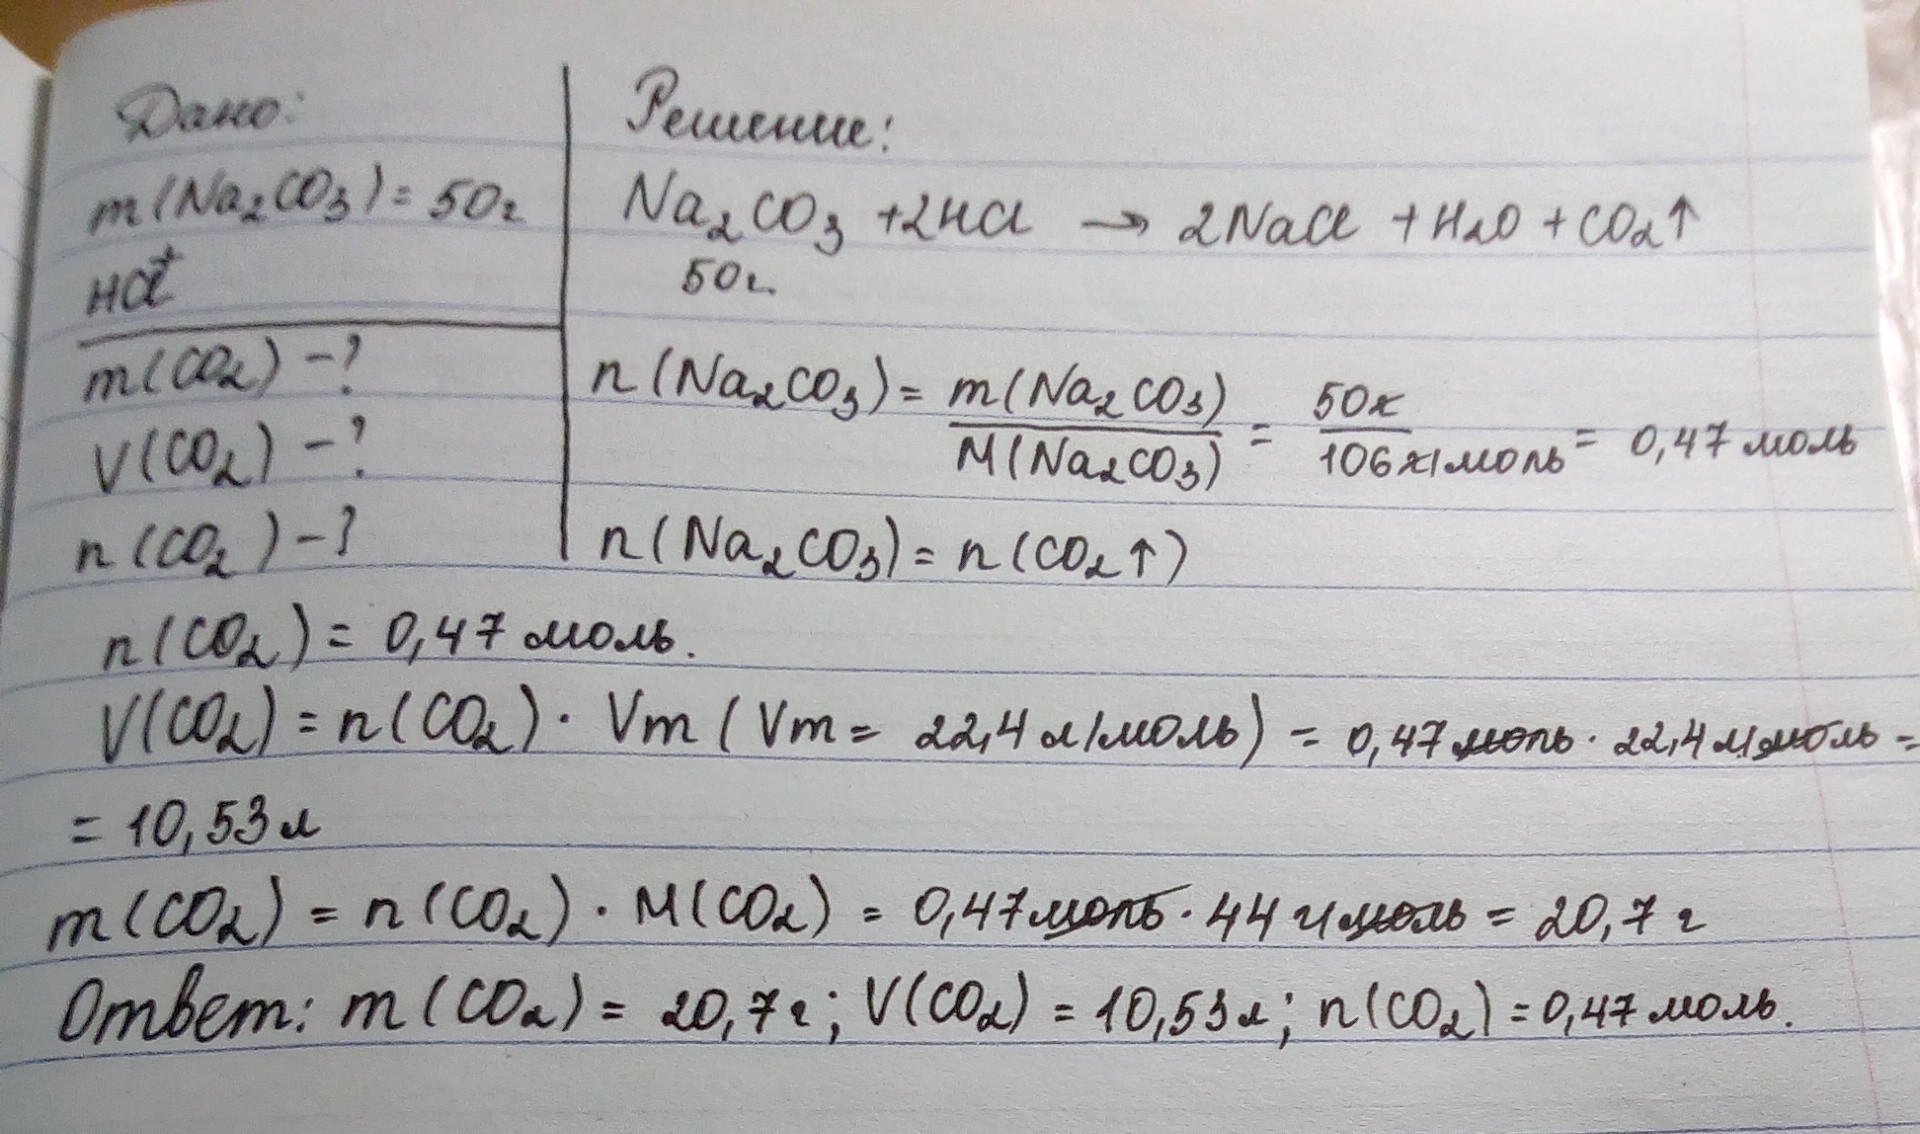 Дано:
m(Na₂CO₃) = 50г
HCl⁺
m(CO₂) – ?
V(CO₂) – ?
n(CO₂) – ?
Решение:
Na₂CO₃ + 2HCl → 2NaCl + H₂O + CO₂↑
50г.
n(Na₂CO₃) = m(Na₂CO₃) / M(Na₂CO₃) = 50г / 106 г/моль = 0,47 моль
n(Na₂CO₃) = n(CO₂↑)
n(CO₂) = 0,47 моль.
V(CO₂) = n(CO₂) · Vm (Vm = 22,4 л/моль) = 0,47 моль · 22,4 л/моль =
= 10,53 л
m(CO₂) = n(CO₂) · M(CO₂) = 0,47 моль · 44 г/моль = 20,7 г
Ответ: m(CO₂) = 20,7 г; V(CO₂) = 10,53 л; n(CO₂) = 0,47 моль.